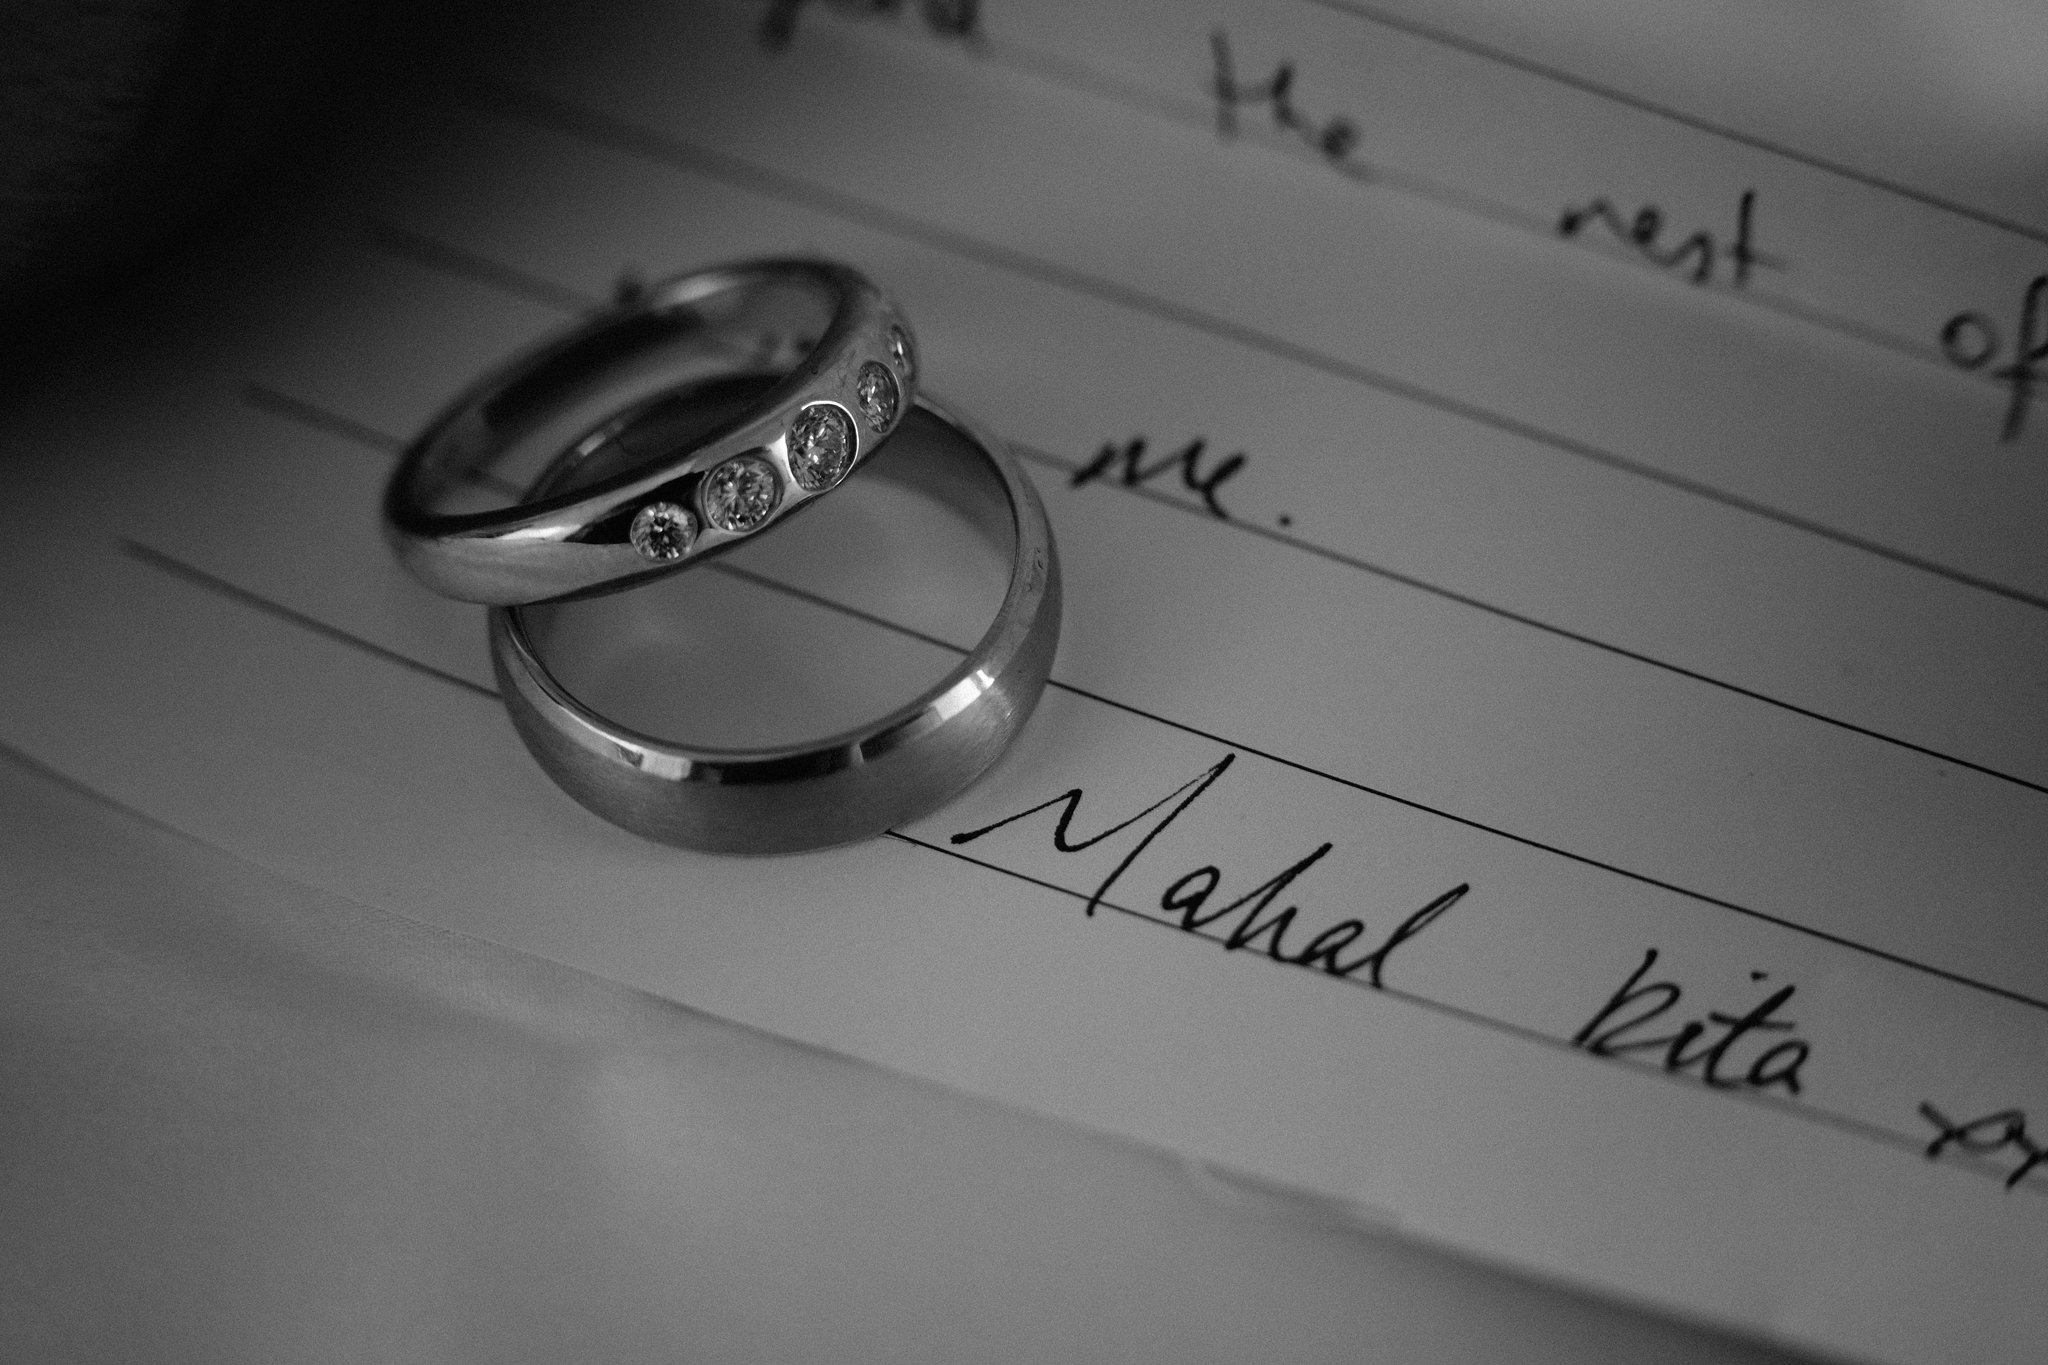 the rest of
me.
Mahal kita xox